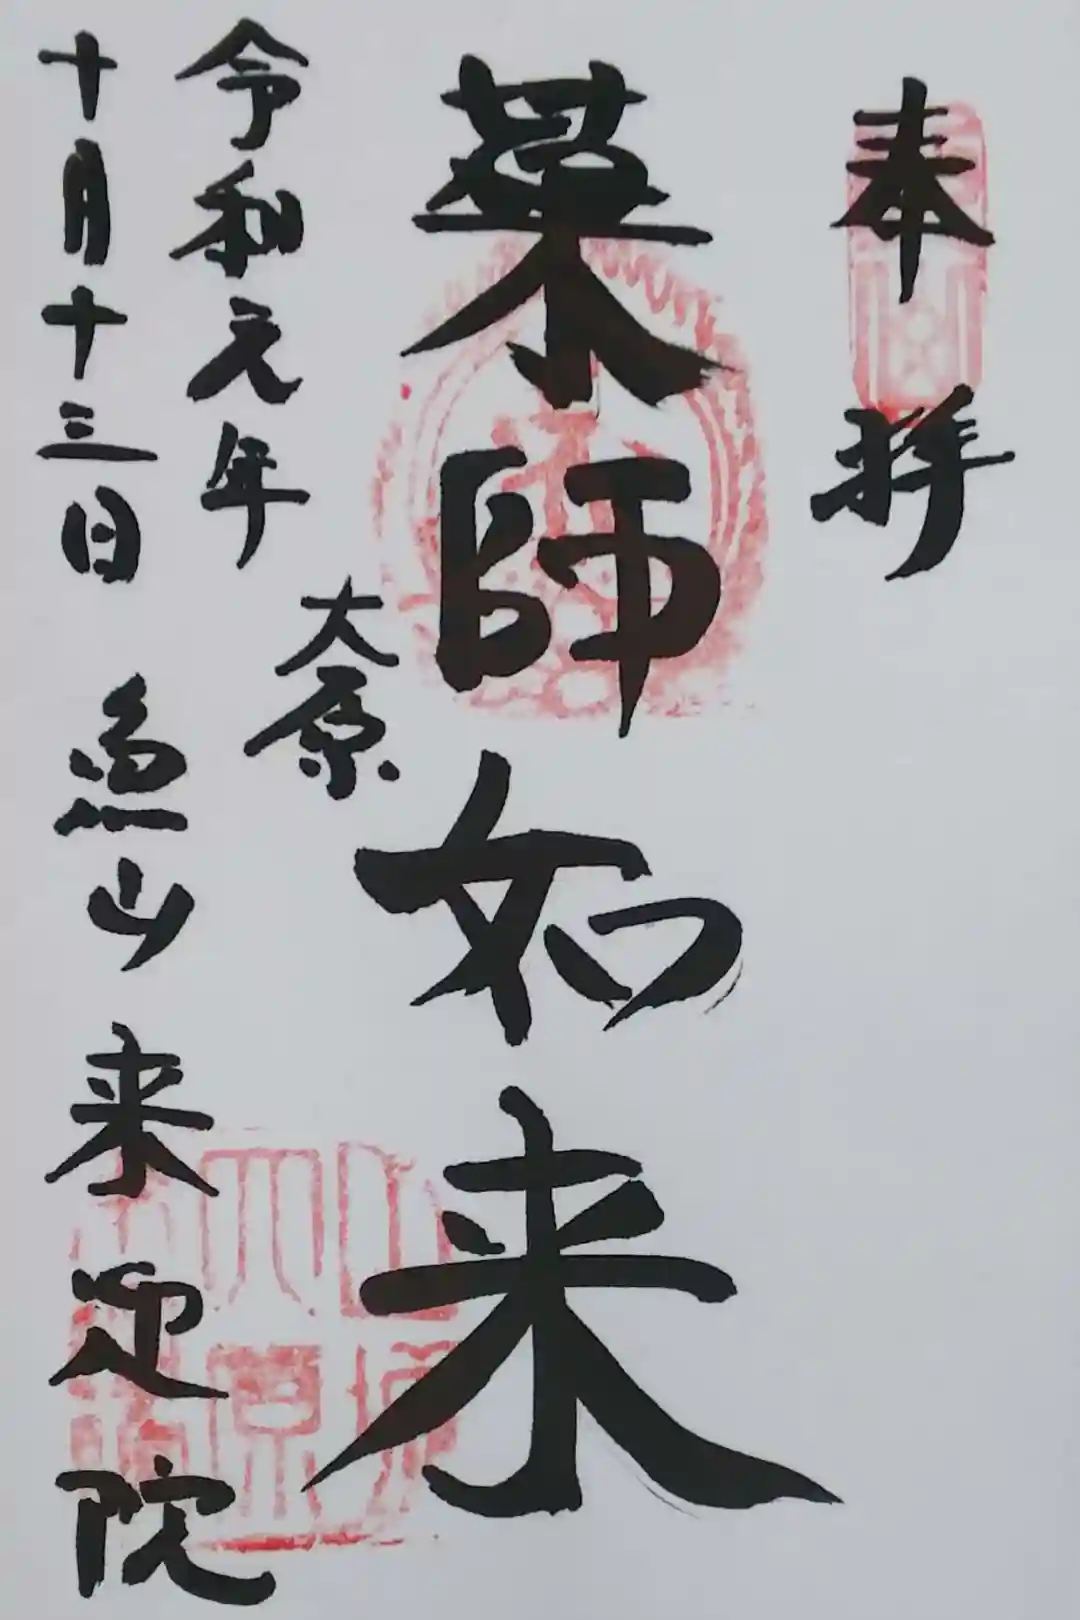 奉拝
薬師如来
大原
令和元年
十月十三日
魚山 来迎院